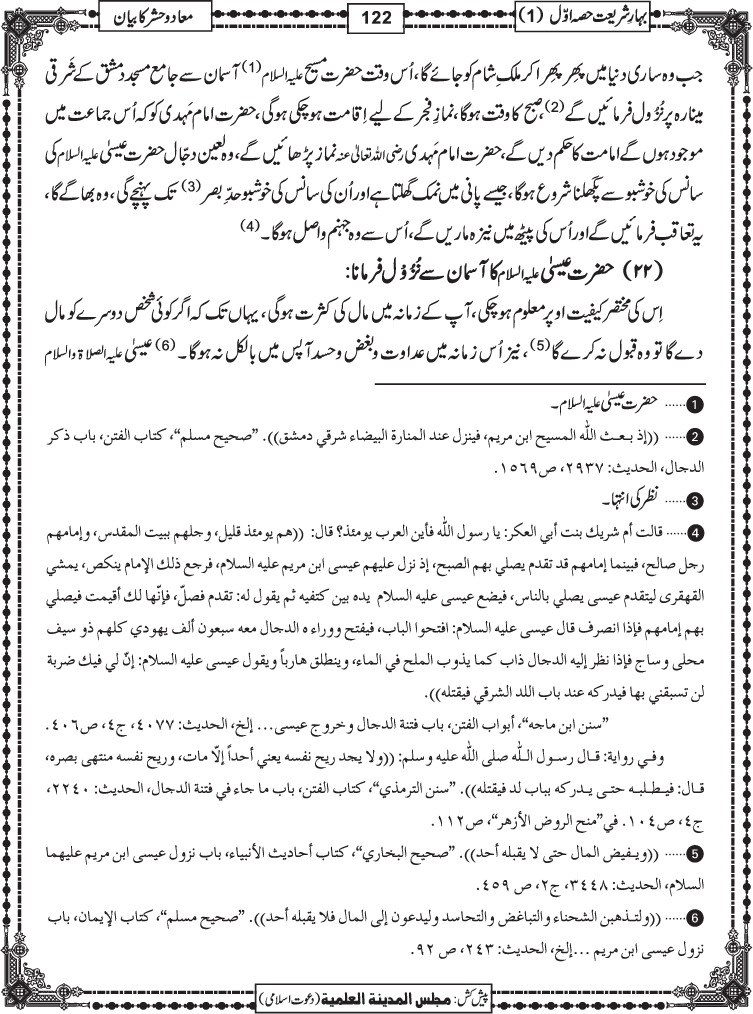 بہارِ شریعت حصہ اوّل (1)
122
معاد و حشر کا بیان
جب وہ ساری دنیا میں پھر پھرا کر ملکِ شام کو جائے گا، اُس وقت حضرت مسیح علیہ السلام (1) آسمان سے جامع مسجد دمشق کے شَرقی
مینارہ پر نُزُول فرمائیں گے (2)، صبح کا وقت ہوگا، نمازِ فجر کے لیے اِقامت ہوچکی ہوگی، حضرت امام مَہدی کو کہ اُس جماعت میں
موجود ہوں گے امامت کا حکم دیں گے، حضرت امام مَہدی رضی اللہ تعالیٰ عنہ نماز پڑھائیں گے، وہ لعین دجّال حضرت عیسیٰ علیہ السلام کی
سانس کی خوشبو سے پگھلنا شروع ہوگا، جیسے پانی میں نمک گھلتا ہے اور اُن کی سانس کی خوشبو حدِّ بصر (3) تک پہنچے گی، وہ بھاگے گا،
یہ تعاقب فرمائیں گے اور اُس کی پیٹھ میں نیزہ ماریں گے، اُس سے وہ جہنم واصل ہوگا۔ (4)
(۲۲) حضرت عیسیٰ علیہ السلام کا آسمان سے نُزُوْل فرمانا:
اِس کی مختصر کیفیت اوپر معلوم ہوچکی، آپ کے زمانہ میں مال کی کثرت ہوگی، یہاں تک کہ اگر کوئی شخص دوسرے کو مال
دے گا تو وہ قبول نہ کرے گا (5)، نیز اُس زمانہ میں عداوت و بغض و حسد آپس میں بالکل نہ ہوگا۔ (6) عیسیٰ علیہ الصلاۃ والسلام
1 ...... حضرت عیسیٰ علیہ السلام۔
2 ...... ((إذ بعث الله المسيح ابن مريم، فينزل عند المنارة البيضاء شرقي دمشق)). "صحيح مسلم"، كتاب الفتن، باب ذكر
الدجال، الحديث: ٢٩٣٧، ص١٥٦٩.
3 ...... نظر کی انتہا۔
4 ...... قالت أم شريك بنت أبي العكر: يا رسول الله فأين العرب يومئذ؟ قال: ((هم يومئذ قليل، وجلهم ببيت المقدس، وإمامهم
رجل صالح، فبينما إمامهم قد تقدم يصلي بهم الصبح، إذ نزل عليهم عيسى ابن مريم عليه السلام، فرجع ذلك الإمام ينكص، يمشي
القهقرى ليتقدم عيسى يصلي بالناس، فيضع عيسى عليه السلام يده بين كتفيه ثم يقول له: تقدم فصلّ، فإنّها لك أقيمت فيصلي
بهم إمامهم فإذا انصرف قال عيسى عليه السلام: افتحوا الباب، فيفتح ووراء ه الدجال معه سبعون ألف يهودي كلهم ذو سيف
محلى وساج فإذا نظر إليه الدجال ذاب كما يذوب الملح في الماء، وينطلق هارباً ويقول عيسى عليه السلام: إنّ لي فيك ضربة
لن تسبقني بها فيدركه عند باب اللد الشرقي فيقتله)).
"سنن ابن ماجه"، أبواب الفتن، باب فتنة الدجال وخروج عيسى... إلخ، الحديث: ٤٠٧٧، ج٤، ص٤٠٦.
وفي رواية: قال رسول الله صلى الله عليه وسلم: ((ولا يجد ريح نفسه يعني أحداً إلّا مات، وريح نفسه منتهى بصره،
قال: فيطلبه حتى يدركه بباب لد فيقتله)). "سنن الترمذي"، كتاب الفتن، باب ما جاء في فتنة الدجال، الحديث: ٢٢٤٠،
ج٤، ص١٠٤. في"منح الروض الأزهر"، ص١١٢.
5 ...... ((ويفيض المال حتى لا يقبله أحد)). "صحيح البخاري"، كتاب أحاديث الأنبياء، باب نزول عيسى ابن مريم عليهما
السلام، الحديث: ٣٤٤٨، ج٢، ص ٤٥٩.
6 ...... ((ولتذهبن الشحناء والتباغض والتحاسد وليدعون إلى المال فلا يقبله أحد)). "صحيح مسلم"، كتاب الإيمان، باب
نزول عيسى ابن مريم ...إلخ، الحديث: ٢٤٣، ص ٩٢.
پیش کش: مجلس المدینة العلمیة (دعوت اسلامی)